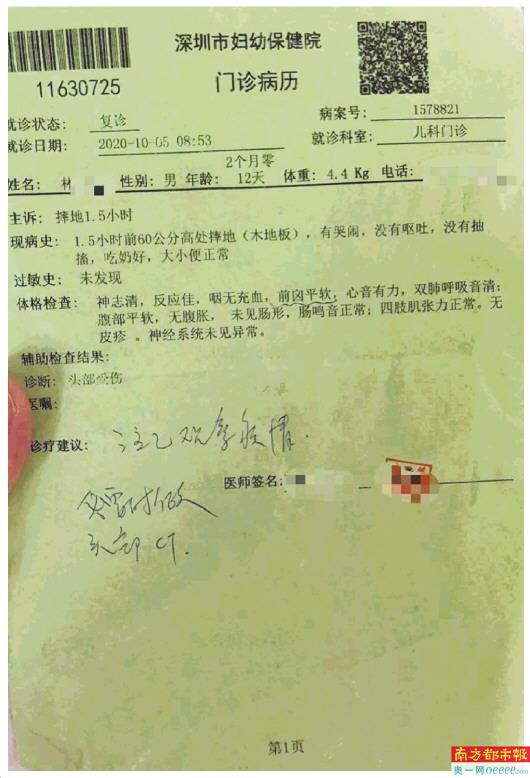 深圳市妇幼保健院
11630725
门诊病历
就诊状态: 复诊
病案号: 1578821
就诊日期: 2020-10-05 08:53
就诊科室: 儿科门诊
姓名: 林 性别: 男 年龄: 2个月零12天 体重: 4.4 Kg 电话:
主诉: 摔地1.5小时
现病史: 1.5小时前60公分高处摔地（木地板），有哭闹，没有呕吐，没有抽
搐，吃奶好，大小便正常
过敏史: 未发现
体格检查: 神志清，反应佳，咽无充血，前囟平软；心音有力，双肺呼吸音清；
腹部平软，无腹胀， 未见肠形，肠鸣音正常；四肢肌张力正常。无
皮疹 。神经系统未见异常。
辅助检查结果:
诊断: 头部受伤
医嘱:
诊疗建议: 注意观察病情.
医师签名:
必要时做
头部CT.
第1页
南方都市报
奥一网oeeee.com